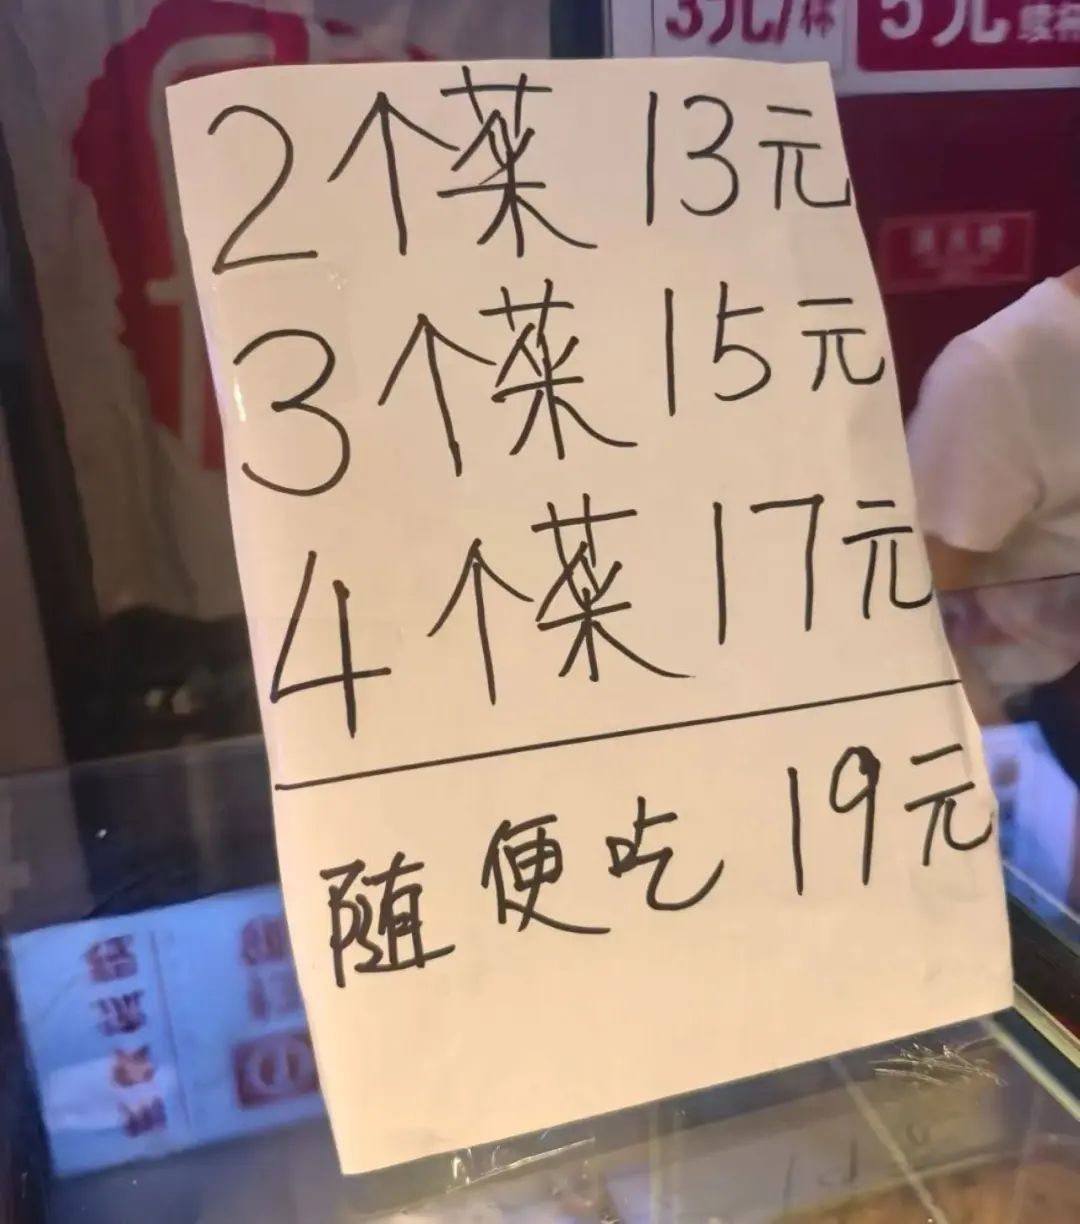 3元/杯 5元
2个菜 13元
3个菜 15元
4个菜 17元
随便吃 19元